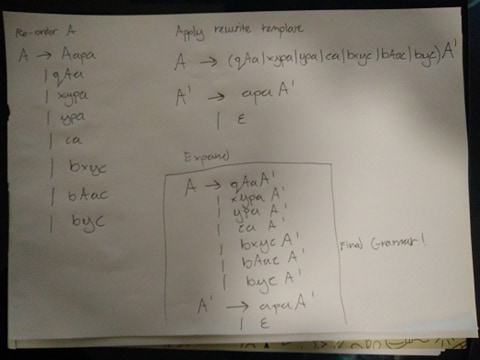 Re-order A
A → Aapa
| qAa
| xypa
| ypa
| ca
| bxyc
| bAac
| byc
Apply rewrite template
A → (qAa|xypa|ypa|ca|bxyc|bAac|byc)A'
A' → apaA'
| ε
Expand
A → qAaA'
| xypa A'
| ypa A'
| ca A'
| bxyc A'
| bAac A'
| byc A'
A' → apaA'
| ε
Final Grammar!